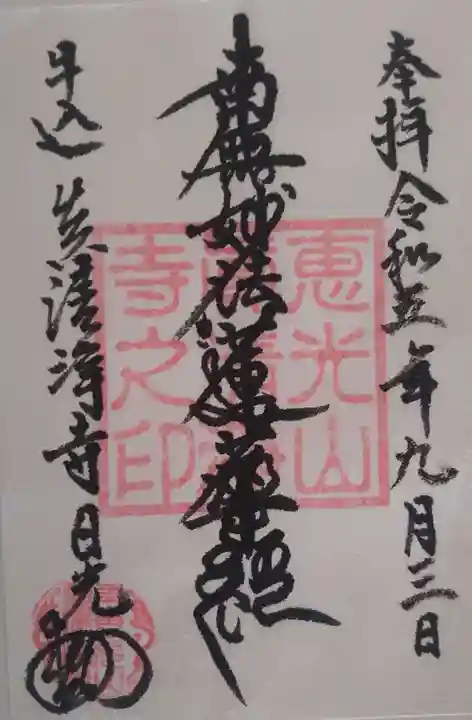 奉拝 令和五年九月三日
南無妙法蓮華経
牛込 清浄寺 日光
恵光山
寺之印